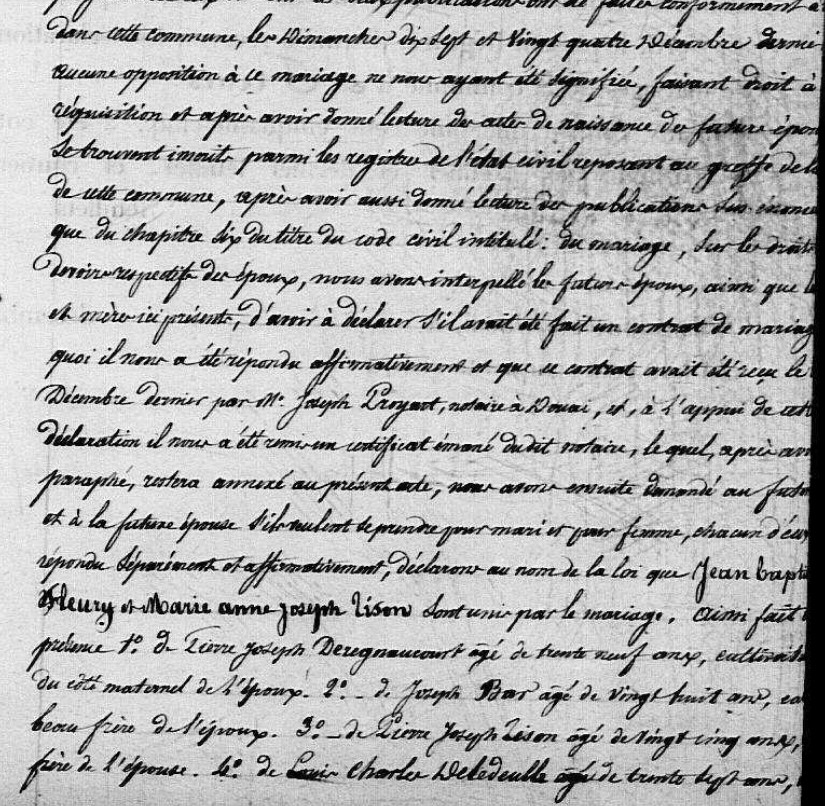 publications ont été faites conformément à
dans cette commune, les Dimanches dix sept et vingt quatre Décembre dernie
aucune opposition à ce mariage ne nous ayant été signifiée, faisant droit à
réquisition et après avoir donné lecture des actes de naissance des futurs épou
se trouvent inscrits parmi les registres de l'état civil reposant au greffe de l
de cette commune, après avoir aussi donné lecture des publications sus énonc
que du chapitre six du titre du code civil intitulé : du mariage, sur les droits
devoirs respectifs des époux, nous avons interpellé les futurs époux, ainsi que l
et mères ici présents, d'avoir à déclarer s'il avait été fait un contrat de mariag
quoi il nous a été répondu affirmativement et que ce contrat avait été reçu le
Décembre dernier par Mr. Joseph Proyart, notaire à Douai, et, à l'appui de cett
déclaration il nous a été remis un certificat émané dudit notaire, lequel, après avo
paraphé, restera annexé au présent acte, nous avons ensuite demandé au futur
et à la future épouse s'ils veulent se prendre pour mari et pour femme, chacun d'eux
répondu séparément et affirmativement, déclarons au nom de la loi que Jean bapti
Fleury et Marie anne joseph Tison sont unis par le mariage. Ainsi fait
présence 1.º de Pierre Joseph Deregnaucourt agé de trente neuf ans, cultivat
du côté maternel de l'époux. 2.º de Joseph Bar agé de vingt huit ans,
beau frère de l'époux. 3.º de Pierre Joseph Tison âgé de vingt cinq ans,
frère de l'épouse. 4.º de Louis Charles Deledeulle agé de trente sept ans,